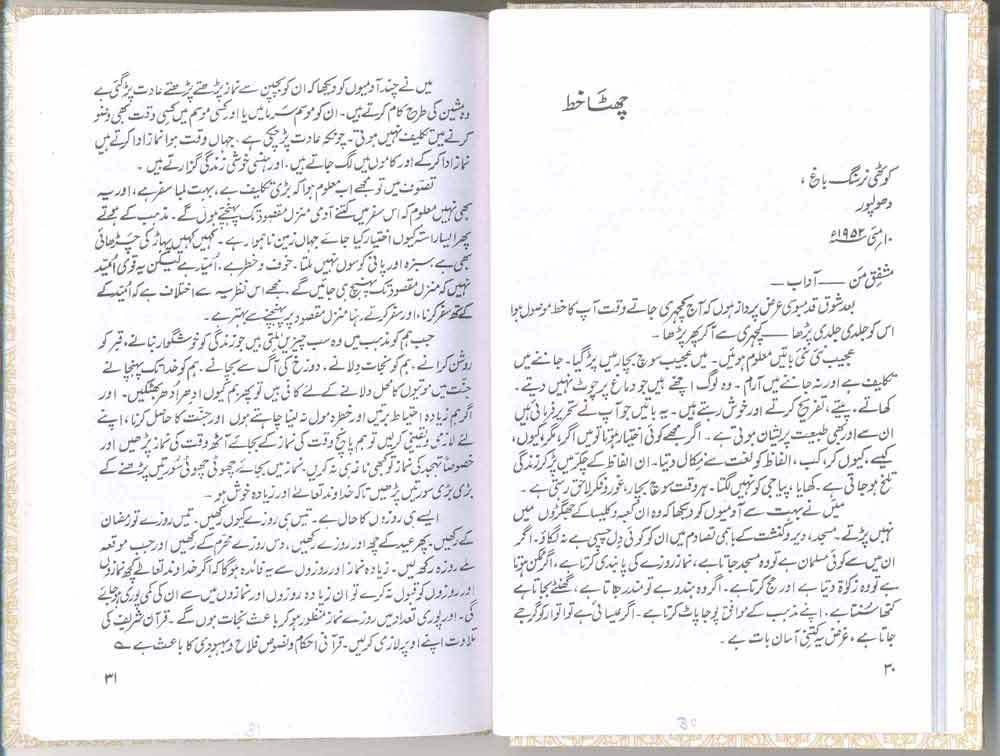 چھٹا خط
کوٹھی نرسنگ باغ ،
دھولپور
۱۰ مئی ۱۹۵۲ء
مشفقِ من — آداب —
بعد شوق قدمبوسی عرض پرداز ہوں کہ آج کچہری جاتے وقت آپ کا خط موصول ہوا
اس کو جلدی جلدی پڑھا — کچہری سے آ کر پھر پڑھا ۔
عجیب نئی نئی باتیں معلوم ہوئیں ۔ میں عجیب سوچ بچار میں پڑ گیا ۔ جاننے میں
تکلیف ہے اور نہ جاننے میں آرام ۔ وہ لوگ اچھے ہیں جو دماغ پر چوٹ نہیں دیتے ۔
کھاتے ، پیتے ، تفریح کرتے اور خوش رہتے ہیں ۔ یہ باتیں جو آپ نے تحریر فرمائی ہیں
ان سے اور بھی طبیعت پریشان ہوتی ہے ۔ اگر مجھے کوئی اختیار ہوتا تو میں اگر ، مگر ، کیوں ،
کیسے ، کیوں کر ، کب ، الفاظ کو لغت سے نکال دیتا ۔ ان الفاظ کے چکر میں پڑ کر زندگی
تلخ ہو جاتی ہے ۔ کھایا ، پیا جی کو نہیں لگتا ۔ ہر وقت سوچ بچار ، غور و فکر لاحق رہتی ہے ۔
میں نے بہت سے آدمیوں کو دیکھا کہ وہ ان کعبہ و کلیسا کے جھگڑوں میں
نہیں پڑتے ۔ مسجد ، دیر و کنشت کے باہمی تصادم میں ان کو کوئی دلچسپی ہے نہ لگاؤ ۔ اگر
ان میں سے کوئی مسلمان ہے تو وہ مسجد جاتا ہے ، نماز روزے کی پابندی کرتا ہے ، اگر ممکن ہوتا
ہے تو وہ زکوٰۃ دیتا ہے اور حج کرتا ہے ۔ اگر وہ ہندو ہے تو مندر جاتا ہے ، گھنٹے بجاتا ہے
کتھا سنتا ہے ۔ اپنے مذہب کے موافق پوجا پاٹ کرتا ہے ۔ اگر عیسائی ہے تو اتوار کو گرجے
جاتا ہے ، غرض یہ کتنی آسان بات ہے ۔
۳۰
30
میں نے چند آدمیوں کو دیکھا کہ ان کو بچپن سے نماز پڑھتے پڑھتے عادت پڑ گئی ہے
وہ مشین کی طرح کام کرتے ہیں ۔ ان کو موسم سرما میں یا اور کسی موسم میں کسی وقت بھی وضو
کرنے میں تکلیف نہیں ہوتی ۔ چونکہ عادت پڑ چکی ہے ، جہاں وقت ہوا نماز ادا کرتے ہیں
نماز ادا کر کے اور کاموں میں لگ جاتے ہیں ، اور ہنسی خوشی زندگی گزارتے ہیں ۔
تصوف میں تو مجھے اب معلوم ہوا کہ بڑی تکلیف ہے ، بہت لمبا سفر ہے ، اور یہ
بھی نہیں معلوم کہ اس سفر میں کتنے آدمی منزل مقصود تک پہنچتے ہوں گے ۔ مذہب کے ہوتے
پھر ایسا راستہ کیوں اختیار کیا جائے جہاں زمین ناہموار ہے ۔ کہیں کہیں پہاڑ کی چڑھائی
بھی ہے سبزہ اور پانی کوسوں نہیں ملتا ۔ خوف و خطر ہے ، اُمید ہے لیکن یہ قوی اُمید
نہیں کہ منزل مقصود تک پہنچ ہی جائیں گے ۔ مجھے اس نظریہ سے اختلاف ہے کہ اُمید کے
کے تھ سفر کرنا ، اور سفر کرتے رہنا منزل مقصود پر پہنچنے سے بہتر ہے ۔
جب ہم کو مذہب میں وہ سب چیزیں ملتی ہیں جو زندگی کو خوشگوار بنائے ، قبر کو
روشن کرائے ، ہم کو نجات دلائے ، دوزخ کی آگ سے بچائے ۔ ہم کو خدا تک پہنچائے
جنت میں موتیوں کا محل دلانے کے لئے کافی ہیں تو پھر ہم کیوں ادھر اُدھر بھٹکیں ۔ اور
اگر ہم زیادہ احتیاط برتیں اور خطرہ مول نہ لینا چاہتے ہوں اور جنت کا حاصل کرنا ، اپنے
لئے لازمی و یقینی کر لیں تو ہم پانچ وقت کی نماز کے بجائے آٹھ وقت کی نماز پڑھیں اور
خصوصاً تہجد کی نماز تو کبھی ناغہ ہی نہ کریں نماز میں بجائے چھوٹی چھوٹی سُورتیں پڑھنے کے
بڑی بڑی سورتیں پڑھیں تاکہ خداوند تعالےٰ اور زیادہ خوش ہو ۔
ایسے ہی روزوں کا حال ہے ۔ تیس ہی روزے کیوں رکھیں ۔ تیس روزے تو رمضان
کے رکھیں ۔ پھر عید کے چھ اور روزے رکھیں ، دس روزے محرم کے رکھیں اور جب موقعہ
ملے روزہ رکھ لیں ۔ زیادہ نماز اور روزوں سے یہ فائدہ ہو گا کہ اگر خداوند تعالےٰ کچھ نمازوں
اور روزوں کو قبول نہ کرے تو ان زیادہ روزوں اور نمازوں میں سے ان کی کمی پوری ہو جائے
گی ۔ اور پوری تعداد میں روزے نماز منظور ہو کر باعث نجات ہوں گے ۔ قرآن شریف کی
تلاوت اپنے اوپر لازمی کر لیں ۔ قرآنی احکام و نصوص فلاح و بہبودی کا باعث ہے
۳۱
31